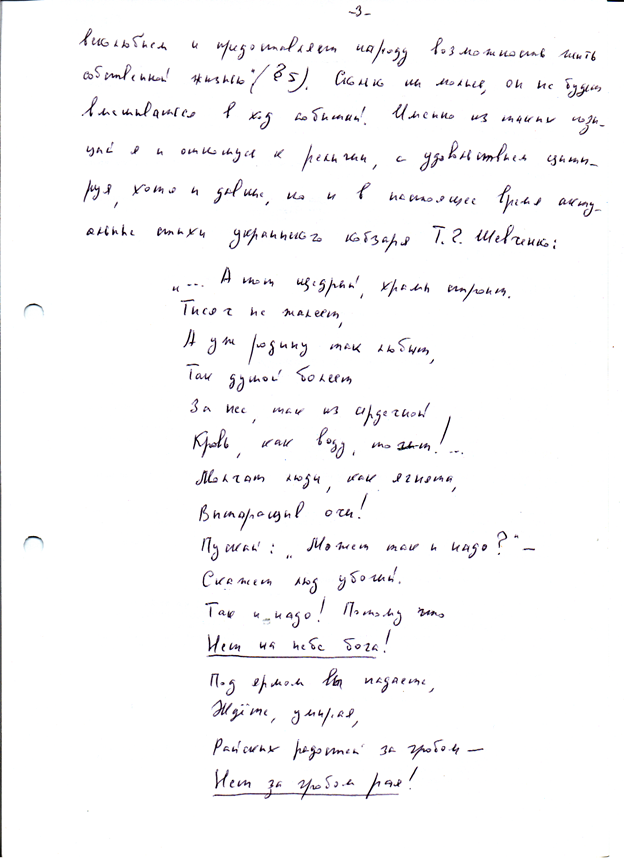 -3-
и предоставляет народу возможность жить
собственной жизнью" (§5). Сколько ни молись, он не будет
вмешиваться в ход событий. Именно из таких пози-
ций я и отношусь к религии, с удовольствием цити-
руя, хотя и давние, но и в настоящее время акту-
альные стихи украинского кобзаря Т. Г. Шевченко:
"... А тот щедрый, храмы строит.
Тысяч не жалеет,
А уж родину так любит,
Так душой болеет
За нее, так из сердечной
Кровь, как воду, !...
Молчат люди, как ягнята,
Вытаращив очи!
Пускай: „Может так и надо?" –
Скажет люд убогий.
Так и надо! Потому что
Нет на небе бога!
Под ярмом вы падаете,
Ждёте, умирая,
Райских радостей за гробом –
Нет за гробом рая!